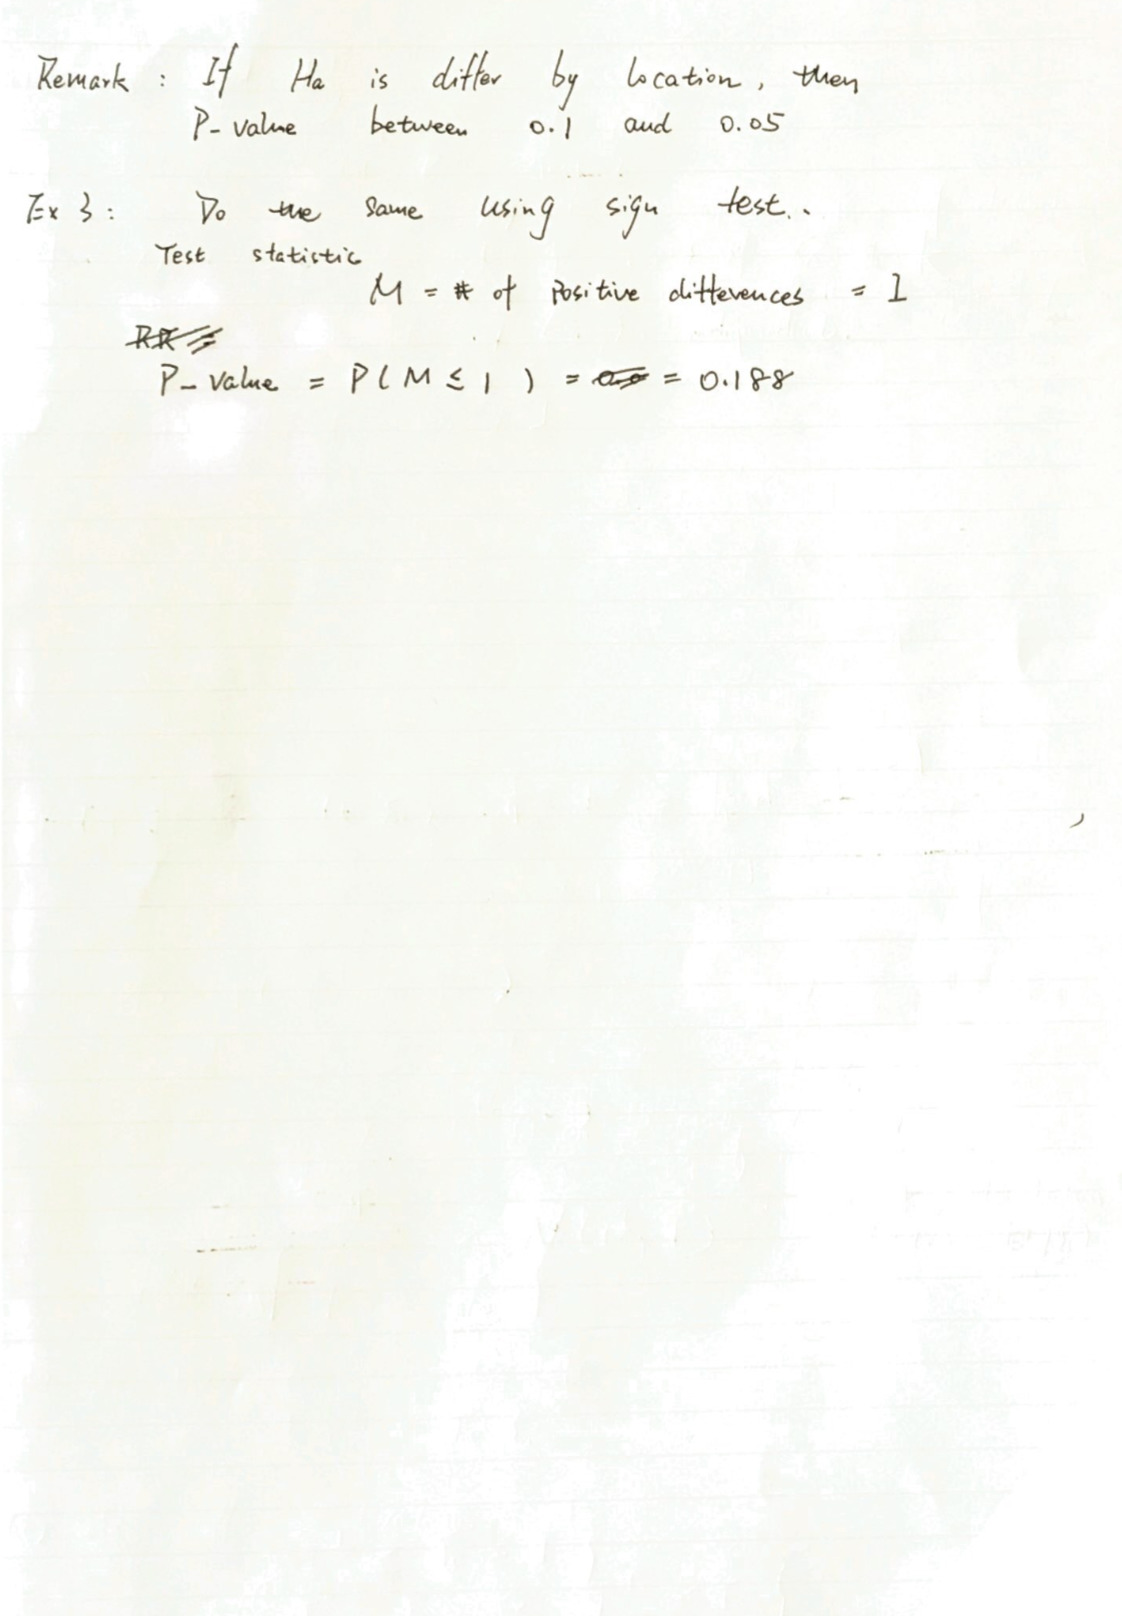 Remark : If Ha is differ by location, then
P-value between 0.1 and 0.05
Ex 3: Do the same using sign test..
Test statistic
M = # of Positive differences = 1
RR =
P-value = P(M ≤ 1) = 0.0 = 0.188